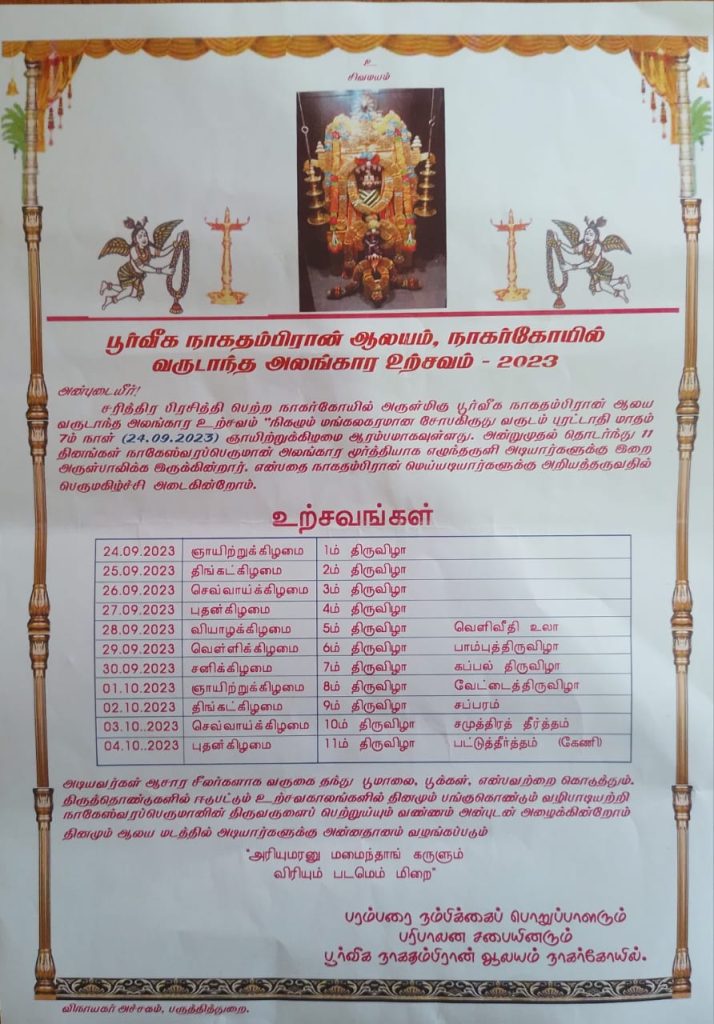 உ
சிவமயம்
பூர்வீக நாகதம்பிரான் ஆலயம், நாகர்கோயில்
வருடாந்த அலங்கார உற்சவம் - 2023
அன்புடையீர்!
சரித்திர பிரசித்தி பெற்ற நாகர்கோயில் அருள்மிகு பூர்வீக நாகதம்பிரான் ஆலய
வருடாந்த அலங்கார உற்சவம் "நிகழும் மங்கலகரமான சோபகிருது வருடம் புரட்டாதி மாதம்
7ம் நாள் (24.09.2023) ஞாயிற்றுக்கிழமை ஆரம்பமாகவுள்ளது. அன்றுமுதல் தொடர்ந்து 11
தினங்கள் நாகேஸ்வரப்பெருமான் அலங்கார மூர்த்தியாக எழுந்தருளி அடியார்களுக்கு இறை
அருள்பாலிக்க இருக்கின்றார். என்பதை நாகதம்பிரான் மெய்யடியார்களுக்கு அறியத்தருவதில்
பெருமகிழ்ச்சி அடைகின்றோம்.
உற்சவங்கள்
24.09.2023 ஞாயிற்றுக்கிழமை 1ம் திருவிழா
25.09.2023 திங்கட்கிழமை 2ம் திருவிழா
26.09.2023 செவ்வாய்க்கிழமை 3ம் திருவிழா
27.09.2023 புதன்கிழமை 4ம் திருவிழா
28.09.2023 வியாழக்கிழமை 5ம் திருவிழா வெளிவீதி உலா
29.09.2023 வெள்ளிக்கிழமை 6ம் திருவிழா பாம்புத்திருவிழா
30.09.2023 சனிக்கிழமை 7ம் திருவிழா கப்பல் திருவிழா
01.10.2023 ஞாயிற்றுக்கிழமை 8ம் திருவிழா வேட்டைத்திருவிழா
02.10.2023 திங்கட்கிழமை 9ம் திருவிழா சப்பரம்
03.10..2023 செவ்வாய்க்கிழமை 10ம் திருவிழா சமுத்திரத் தீர்த்தம்
04.10..2023 புதன்கிழமை 11ம் திருவிழா பட்டுத்தீர்த்தம் (கேணி)
அடியவர்கள் ஆசார சீலர்களாக வருகை தந்து பூமாலை, பூக்கள், என்பவற்றை கொடுத்தும்.
திருத்தொண்டுகளில் ஈடுபட்டும் உற்சவகாலங்களில் தினமும் பங்குகொண்டும் வழிபாடியற்றி
நாகேஸ்வரப்பெருமானின் திருவருளைப் பெற்றுய்யும் வண்ணம் அன்புடன் அழைக்கின்றோம்
தினமும் ஆலய மடத்தில் அடியார்களுக்கு அன்னதானம் வழங்கப்படும்
"அரியுமரனு மமைந்தாங் கருளும்
விரியும் படமெம் மிறை"
பரம்பரை நம்பிக்கைப் பொறுப்பாளரும்
பரிபாலன சபையினரும்
பூர்வீக நாகதம்பிரான் ஆலயம் நாகர்கோயில்.
விநாயகர் அச்சகம், பருத்தித்துறை.